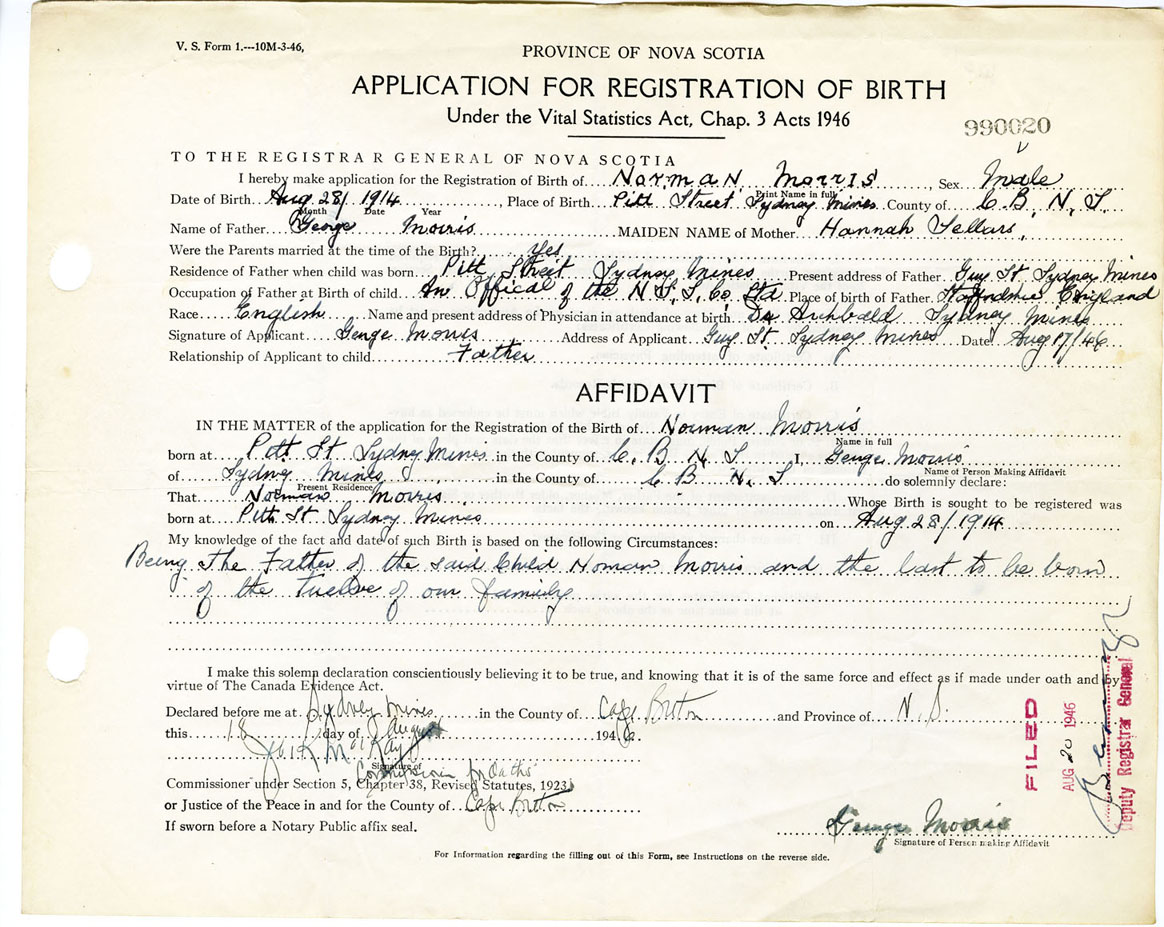 V. S. Form 1.---10M-3-46,
PROVINCE OF NOVA SCOTIA
APPLICATION FOR REGISTRATION OF BIRTH
Under the Vital Statistics Act, Chap. 3 Acts 1946
990020
TO THE REGISTRAR GENERAL OF NOVA SCOTIA
I hereby make application for the Registration of Birth of Norman Morris, Sex Male
Print Name in full
Date of Birth Aug 28/ 1914, Place of Birth Pitt Street Sydney Mines County of C. B, N. S.
Month Date Year
Name of Father George Morris MAIDEN NAME of Mother Hannah Sellars,
Were the Parents married at the time of the Birth? Yes
Residence of Father when child was born Pitt Street Sydney Mines Present address of Father Guy St Sydney Mines
Occupation of Father at Birth of child An Offical of the N S. S. Co, Ltd Place of birth of Father England
Race English Name and present address of Physician in attendance at birth Dr Archbald Sydney Mines
Signature of Applicant George Morris Address of Applicant Guy St. Sydney Mines Date Aug 17/46
Relationship of Applicant to child Father
AFFIDAVIT
IN THE MATTER of the application for the Registration of the Birth of Norman Morris
Name in full
born at Pitt St Sydney Mines in the County of C. B N. S I, George Morris
Name of Person Making Affidavit
of Sydney Mines in the County of C B N. S do solemnly declare:
Present Residence
That Norman Morris Whose Birth is sought to be registered was
born at Pitt St Sydney Mines on Aug 28/1914
My knowledge of the fact and date of such Birth is based on the following Circumstances:
Being The Father of the said Child Noman Morris and the last to be born
of the Twelve of our family
I make this solemn declaration conscientiously believing it to be true, and knowing that it is of the same force and effect as if made under oath and by
virtue of The Canada Evidence Act.
Declared before me at Sydney Mines in the County of Cape Breton and Province of N. S.
this 18 day of August 1946.
Signature of
Commissioner for Oaths
Commissioner under Section 5, Chapter 38, Revised Statutes, 1923
or Justice of the Peace in and for the County of Cape Breton
If sworn before a Notary Public affix seal.
George Morris
Signature of Person making Affidavit
For Information regarding the filling out of this Form, see Instructions on the reverse side.
FILED
AUG 20 1946
Deputy Registrar General